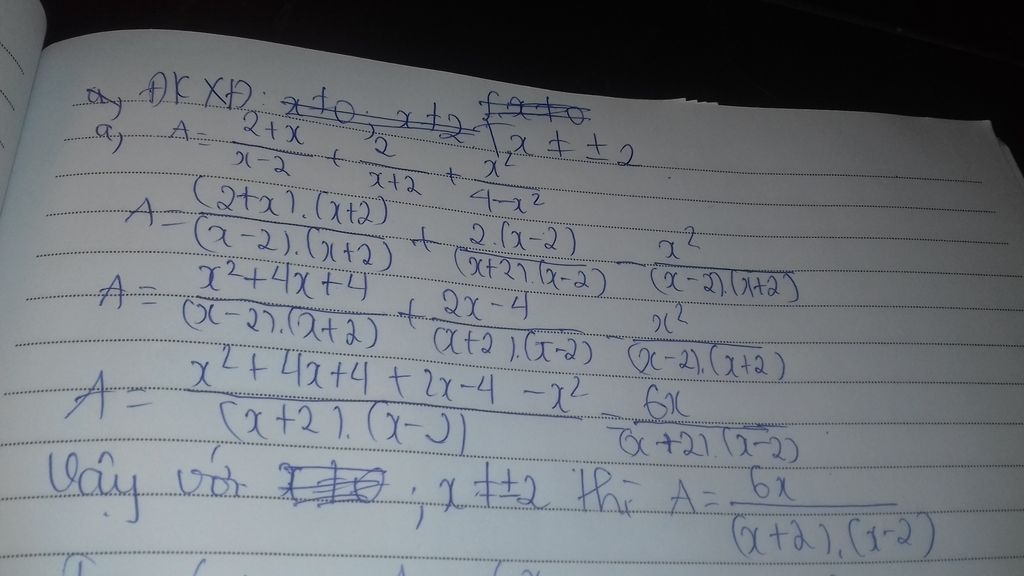 a, ĐKXĐ: x≠0; x≠2 {x≠0
a, A = (2+x)/(x-2) + 2/(x+2) + x²/(4-x²) {x ≠ ±2
A = (2+x).(x+2)/(x-2).(x+2) + 2.(x-2)/(x+2).(x-2) - x²/(x-2).(x+2)
A = x²+4x+4/(x-2).(x+2) + 2x-4/(x+2).(x-2) - x²/(x-2).(x+2)
A = x²+4x+4+2x-4-x²/(x+2).(x-2) = 6x/(x+2).(x-2)
Vậy với x≠0; x≠±2 thì A = 6x/(x+2).(x-2)